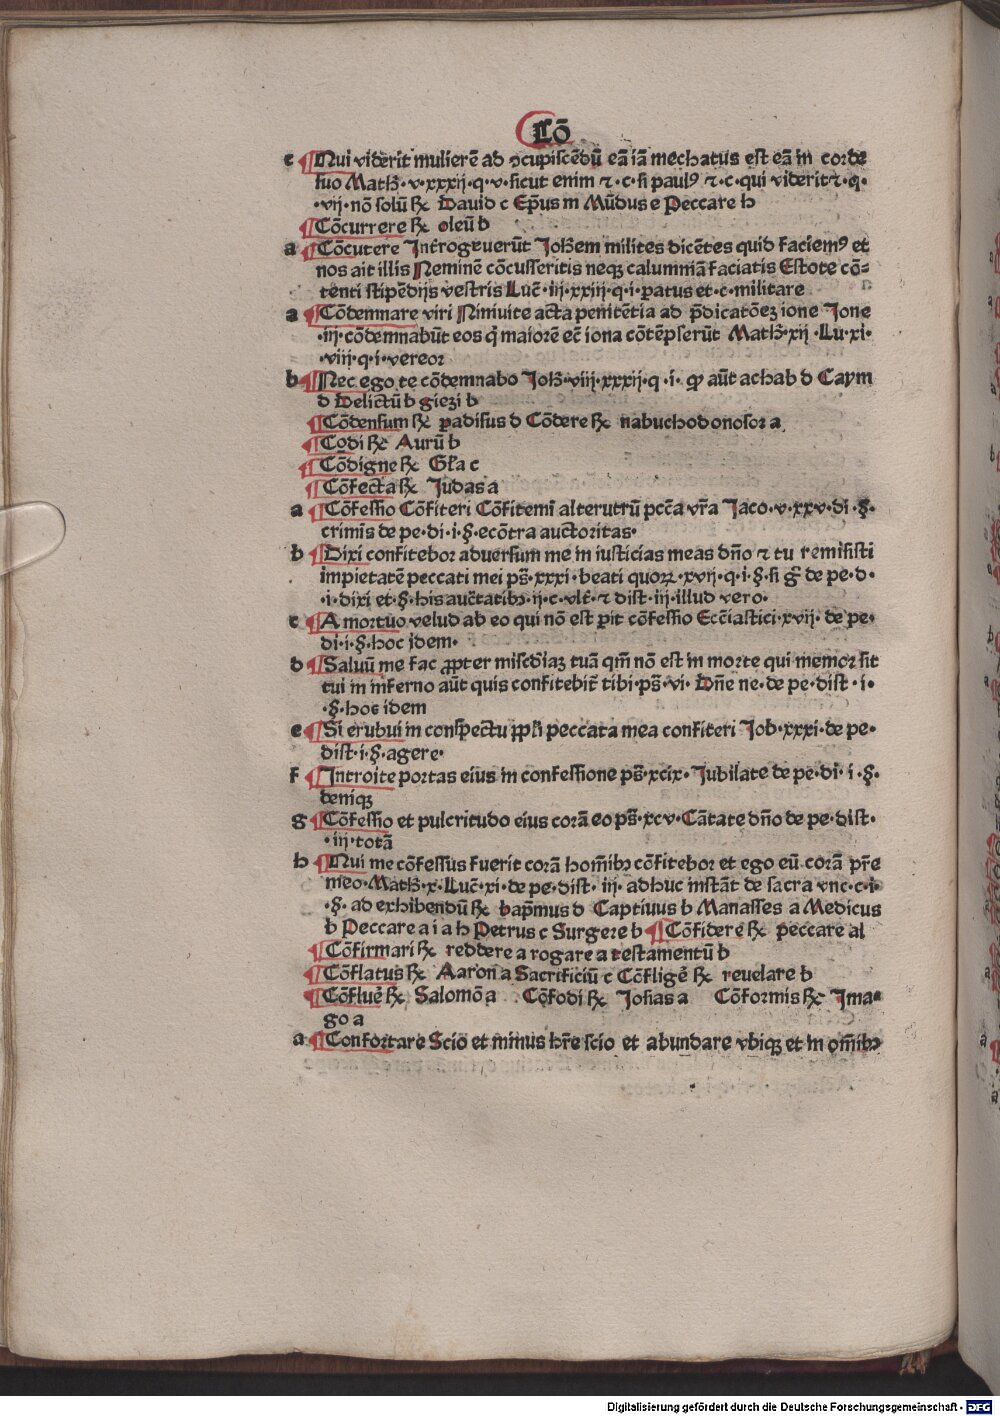 Cõ
c ¶ Qui viderit mulierē ad ꝯcupiſcēdū eā iā mechatus eſt eā in corde
ſuo Math·v·xxxij·q·v·ſicut enim ⁊·c·ſi paulꝰ ⁊·c·qui viderit ⁊·q·
·vij·nõ ſolū ℞ David c Ep̄us m Mūdus e Peccare h
¶ Cõcurrere ℞ oleū b
a ¶ Cõcutere Int̄rogeverūt Joh̄em milites dicētes quid faciemꝰ et
nos ait illis Neminē cõcuſſeritis neqꝫ calumniā faciatis Eſtote cõ-
tenti ſtipēdijs veſtris Luc̄·iij·xxiij·q·i·paratus et·c·militare
a ¶ Cõdemnare viri Ninivite acta penitētia ad p̄dicatõeꝫ ione Jone
·iij·cõdemnabūt eos q̄ maiorē ec̄ iona cõtēpſerūt Math·xij·Lu·xi·
·viij·q·i·vereor
b ¶ Nec ego te cõdemnabo Joh·viij·xxxij·q·i· ꝓ aūt achab d Caym
d Delictū b giezi b
¶ Cõdenſum ℞ ꝑadiſus d Cõdere ℞ nabuchodonoſor a
¶ Codi ℞ Aurū b
¶ Cõdigne ℞ Gl̄a c
¶ Cõfecta ℞ Judas a
a ¶ Cõfeſſio Cõfiteri Cõfitemī alterutrū pcc̄a vr̄a Jaco·v·xxv·di·§·
crimīs de pe·di·i·§·ecõtra auctoritas·
b ¶ Dixi confitebor adverſum me in iuſticias meas dn̄o ⁊ tu remiſiſti
impietatē peccati mei pſ̄·xxxi·beati quoꝝ·xvij·q·i·§·ſi gͥ de pe·d·
·i·dixi et·§·his auc̄tatibꝫ·ij·c·vlt̄·⁊ diſt·iij·illud vero·
c ¶ A mortuo velud ab eo qui nõ eſt ꝑit cõfeſſio Ecc̄iaſtici·xvij·de pe·
di·i·§·hoc idem·
d ¶ Salvū me fac ꝓpter miſcd̄iaꝫ tuā qm̄ nõ eſt in morte qui memor ſit
tui in inferno aūt quis confitebit̄ tibi·pſ̄·vi·Dn̄e ne·de pe·diſt·i·
·§·hoc idem
e ¶ Si erubui in conſpectu ppl̄i peccata mea confiteri Job·xxxi·de pe·
diſt·i·§·agere·
f ¶ Introite portas eius in confeſſione pſ̄·xcix·Jubilate de pe·di·i·§·
deniqꝫ
g ¶ Cõfeſſio et pulcritudo eius corā eo pſ̄·xcv·Cātate dn̄o de pe·diſt·
·iij·totā
h ¶ Qui me cõfeſſus fuerit corā hom̄ibꝫ cõfitebor et ego eū corā pr̄e
meo·Math·x·Luc̄·xi·de pe·diſt·iij·adhuc inſtāt de ſacra vnc·c·i·
·§·ad exhibendū ℞ bap̄mus d Captivus b Manaſſes a Medicus
b Peccare a i a h Petrus c Surgere b ¶ Cõfidere ℞ peccare al
¶ Cõfirmari ℞ reddere a rogare a teſtamentū b
¶ Cõflatus ℞ Aaron a Sacrificiū c Cõfligē ℞ revelare b
¶ Cõfluē ℞ Salomõ a Cõfodi ℞ Joſias a Cõformis ℞ Ima-
go a
a ¶ Confortare Scio et minus hr̄e ſcio et abundare vbiqꝫ et in om̄ibꝫ
Digitalisierung gefördert durch die Deutsche Forschungsgemeinschaft · DFG